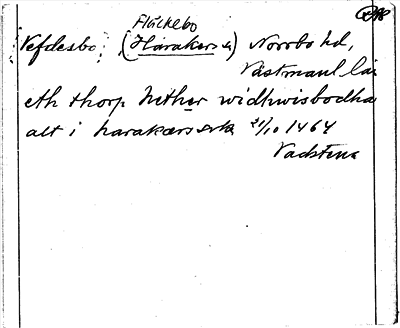 Fläckebo
Vefdesbo (Harakers sn) Norrbo hd,
Västmanl län
eth thorp nether widhwisbodha
alt i harakærs sokn 21/10 1464
Vadstena